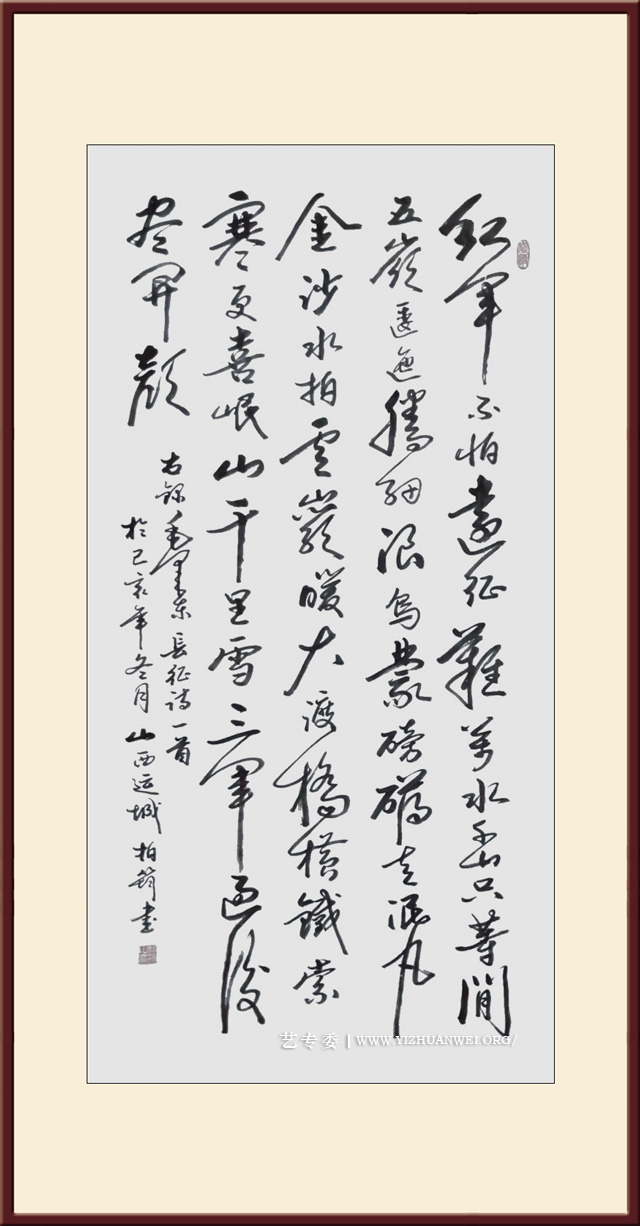 红軍不怕遠征難萬水千山只等閒
五嶺逶迤騰細浪烏蒙磅礴走泥丸
金沙水拍雲巖暖大渡橋橫鐵索
寒更喜岷山千里雪三軍過後
尽開顏
右錄毛澤东長征詩一首
於己亥年冬月山西运城柏筠書
艺专委 | WWW.YIZHUANWEI.ORG/